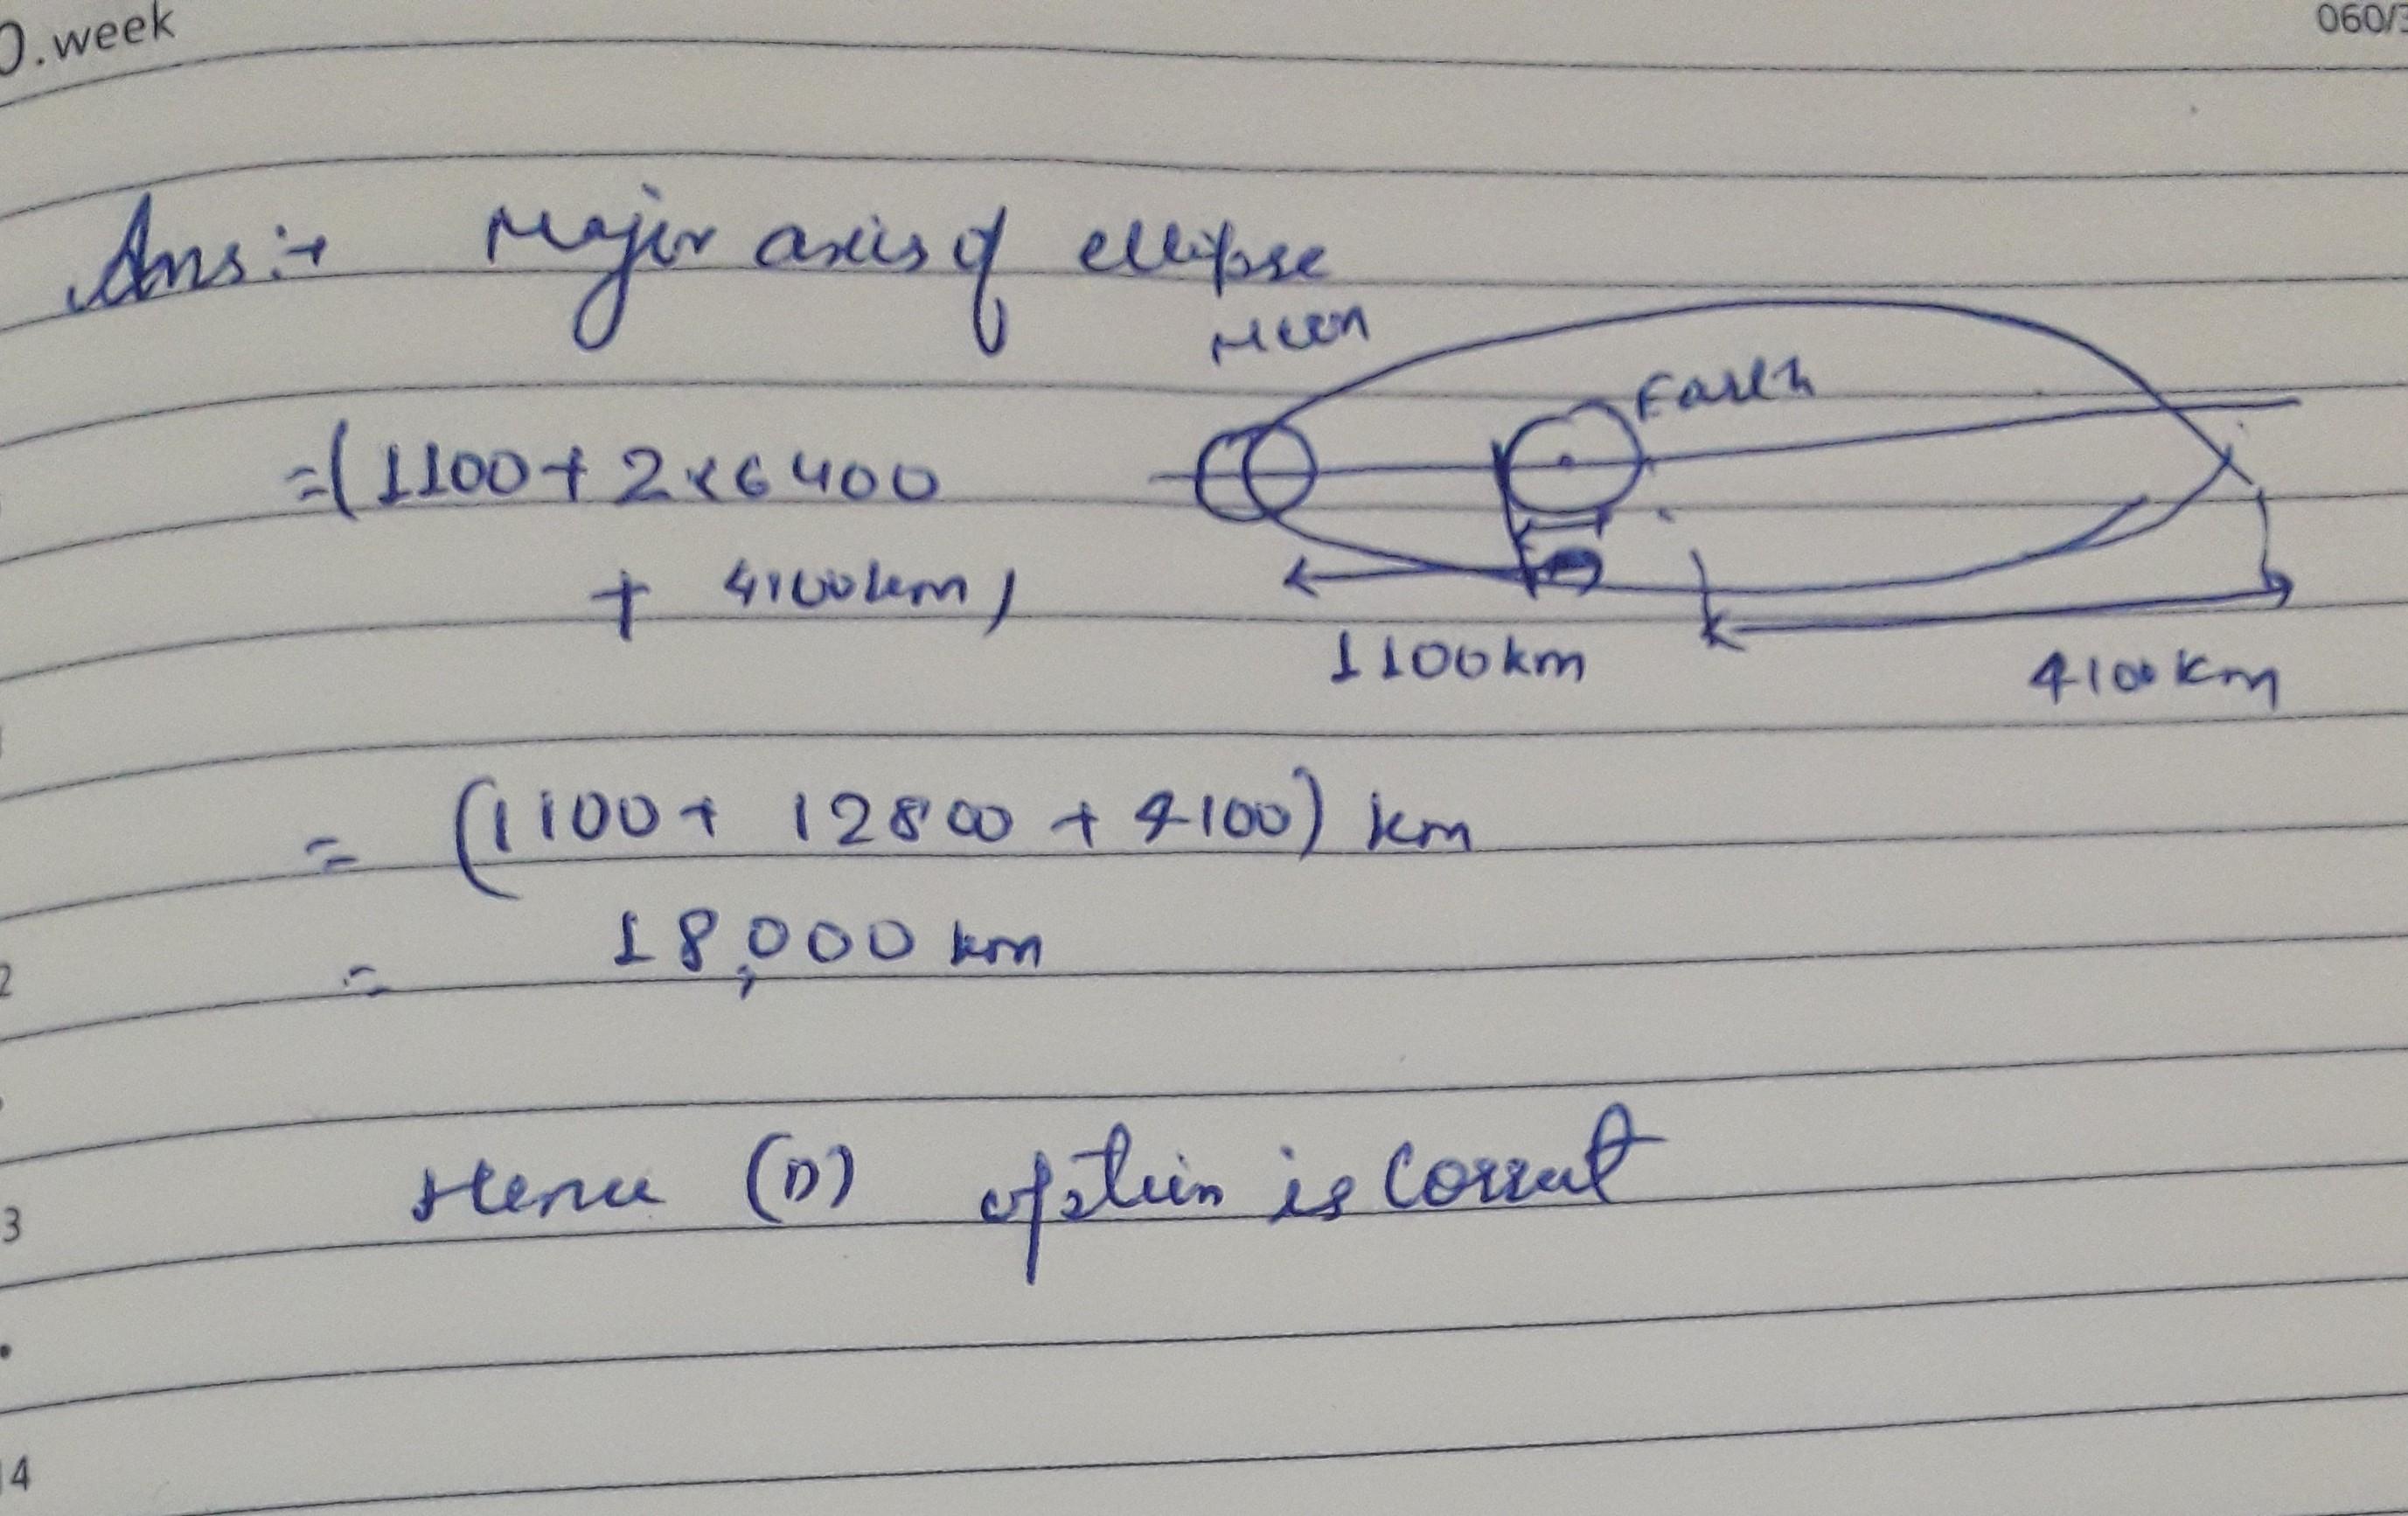 0.week
060/3
Ans:→ Major axis of ellipse
Moon
Earth
=(1100+ 2×6400
+ 4100km)
1100km
4100km
= (1100+ 12800 + 4100) km
= 18,000 km
Hence (D) option is Correct
2
3
14